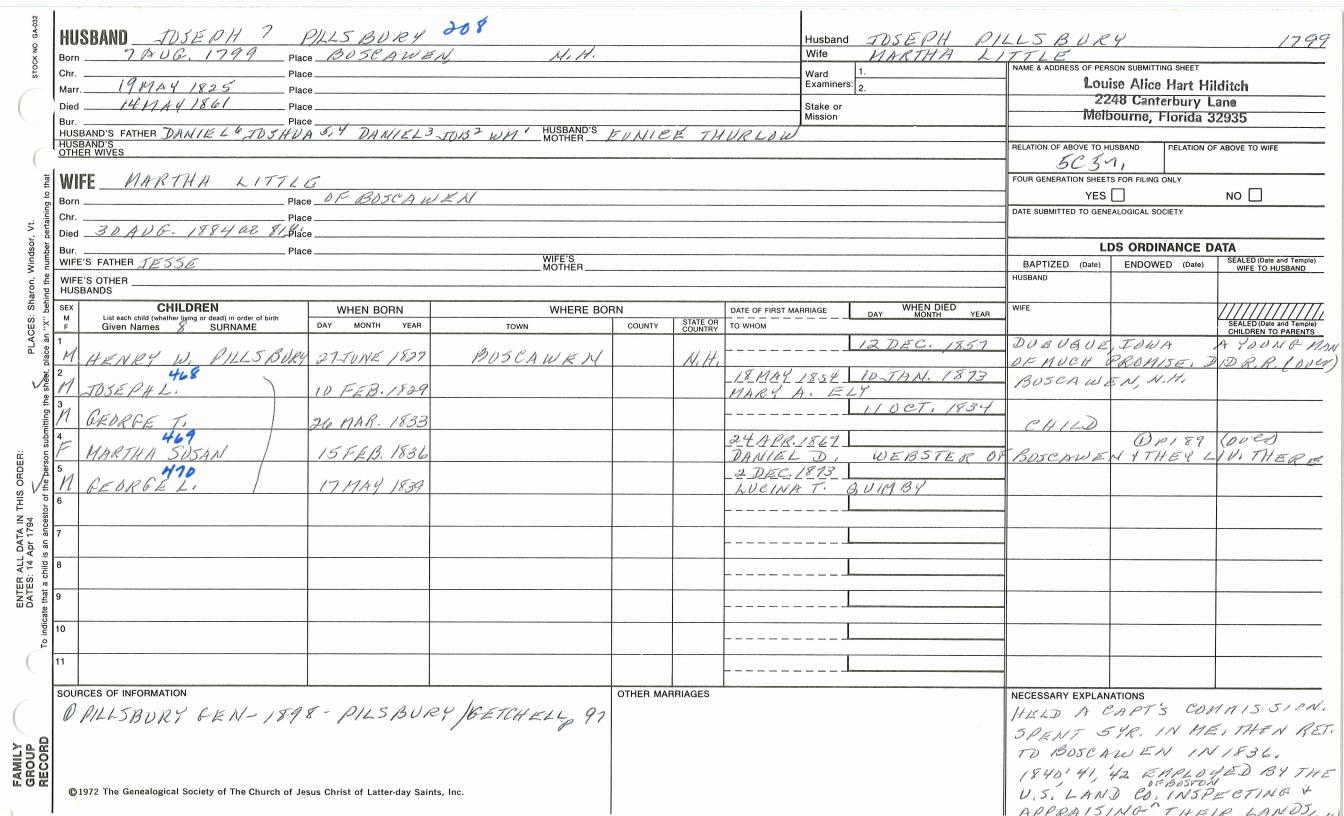 STOCK NO. GA-032
HUSBAND JOSEPH 7 PILLSBURY 208
Born 7 AUG. 1799 Place BOSCAWEN, N.H.
Chr. Place
Marr. 19 MAY 1825 Place
Died 14 MAY 1861 Place
Bur. Place
HUSBAND'S FATHER DANIEL 6 JOSHUA 5,4 DANIEL 3 JOB 2 WM 1 HUSBAND'S MOTHER EUNICE THURLOW
HUSBAND'S OTHER WIVES
Husband JOSEPH PILLSBURY 1799
Wife MARTHA LITTLE
Ward Examiners: 1.
2.
Stake or Mission
NAME & ADDRESS OF PERSON SUBMITTING SHEET
Louise Alice Hart Hilditch
2248 Canterbury Lane
Melbourne, Florida 32935
RELATION OF ABOVE TO HUSBAND RELATION OF ABOVE TO WIFE
5C 3
FOUR GENERATION SHEETS FOR FILING ONLY
YES NO
DATE SUBMITTED TO GENEALOGICAL SOCIETY
WIFE MARTHA LITTLE
Born Place OF BOSCAWEN
Chr. Place
Died 30 AUG. 1884 OR Place
Bur. Place
WIFE'S FATHER JESSE WIFE'S MOTHER
WIFE'S OTHER HUSBANDS
LDS ORDINANCE DATA
BAPTIZED (Date) ENDOWED (Date) SEALED (Date and Temple) WIFE TO HUSBAND
HUSBAND
WIFE
SEALED (Date and Temple) CHILDREN TO PARENTS
SEX M F
CHILDREN
List each child (whether living or dead) in order of birth
Given Names 8 SURNAME
WHEN BORN
DAY MONTH YEAR
WHERE BORN
TOWN COUNTY STATE OR COUNTRY
DATE OF FIRST MARRIAGE
TO WHOM
WHEN DIED
DAY MONTH YEAR
1 M HENRY W. PILLSBURY 27 JUNE 1827 BOSCAWEN N.H. 12 DEC. 1857 DUBUQUE, IOWA A YOUNG MAN
OF MUCH PROMISE. D.D.R.R. (OVER)
2 M JOSEPH L. 468 10 FEB. 1829 18 MAY 1854 10 JAN. 1873 BOSCAWEN, N.H.
MARY A. ELY
3 M GEORGE T. 26 MAR. 1833 11 OCT. 1834 CHILD
4 F MARTHA SUSAN 469 15 FEB. 1836 24 APR. 1867 ① P189 (OVER)
DANIEL D. WEBSTER OF BOSCAWEN & THEY LIV. THERE
5 M GEORGE L. 470 17 MAY 1839 2 DEC. 1873
LUCINA T. QUIMBY
6
7
8
9
10
11
SOURCES OF INFORMATION
① PILLSBURY GEN- 1898 - PILSBURY/GETCHELL p 97
OTHER MARRIAGES
NECESSARY EXPLANATIONS
HELD A CAPT'S COMMISSION.
SPENT 5 YR. IN ME, THEN RET.
TO BOSCAWEN IN 1836.
1840' 41, '42 EMPLOYED BY THE
U.S. LAND CO. OF BOSTON INSPECTING &
APPRAISING THEIR LANDS,
©1972 The Genealogical Society of The Church of Jesus Christ of Latter-day Saints, Inc.
FAMILY GROUP RECORD
ENTER ALL DATA IN THIS ORDER:
DATES: 14 Apr 1794
PLACES: Sharon, Windsor, Vt.
To indicate that a child is an ancestor of the person submitting the sheet, place an "X" behind the number pertaining to that